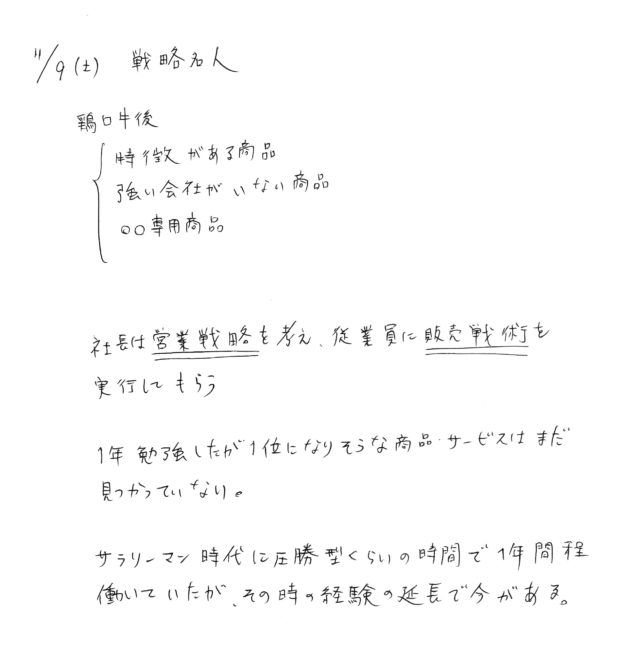 11/9(土) 戦略名人
鶏口牛後
特徴がある商品
強い会社がいない商品
○○専用商品
社長は営業戦略を考え、従業員に販売戦術を
実行してもらう
1年勉強したが1位になりそうな商品・サービスはまだ
見つかっていない。
サラリーマン時代に圧勝型くらいの時間で1年間程
働いていたが、その時の経験の延長で今がある。